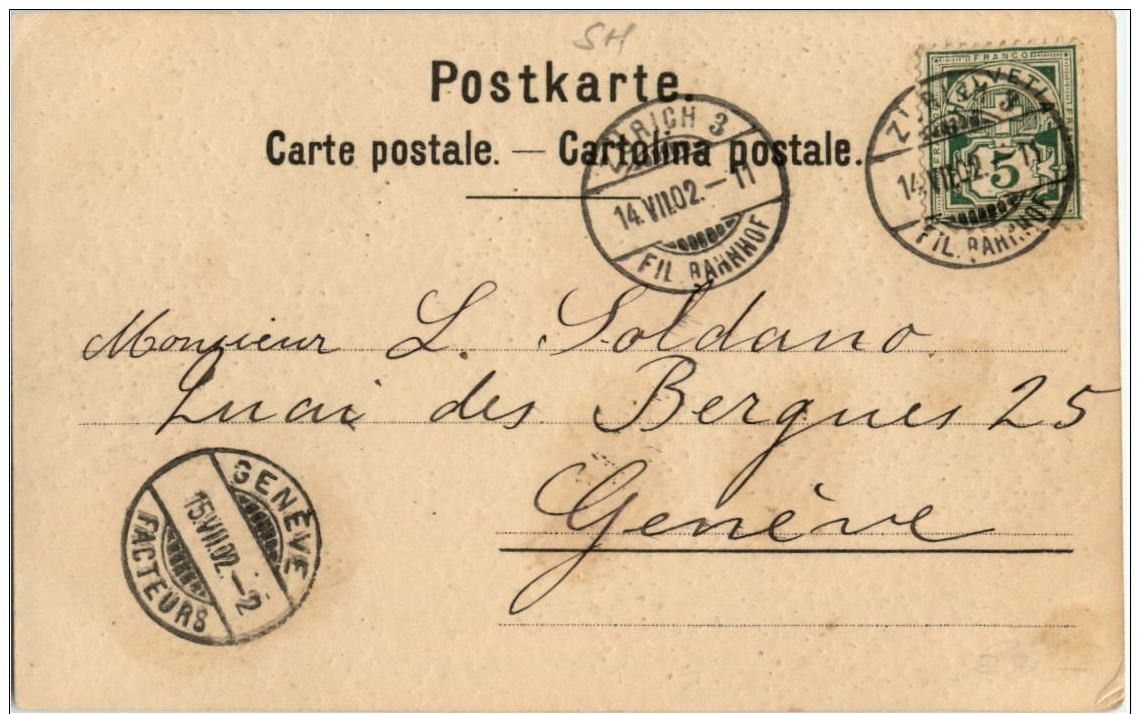 SH
Postkarte.
Carte postale. — Cartolina postale.
FRANCO
HELVETIA
5
ZÜRICH 3
14.VII.02.–11
FIL. BAHNHOF
ZÜRICH 3
14.VII.02.–11
FIL. BAHNHOF
Monsieur L. Soldano
Quai des Bergues 25
Genève
GENÈVE
15.VII.02.–2
FACTEURS